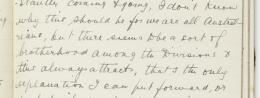 coming & going, I don't know
why this should be for we are all Austral-
ians, but there seems to be a sort of
brotherhood among the Divisions &
this always attracts, that's the only
explanation I can put forward, or